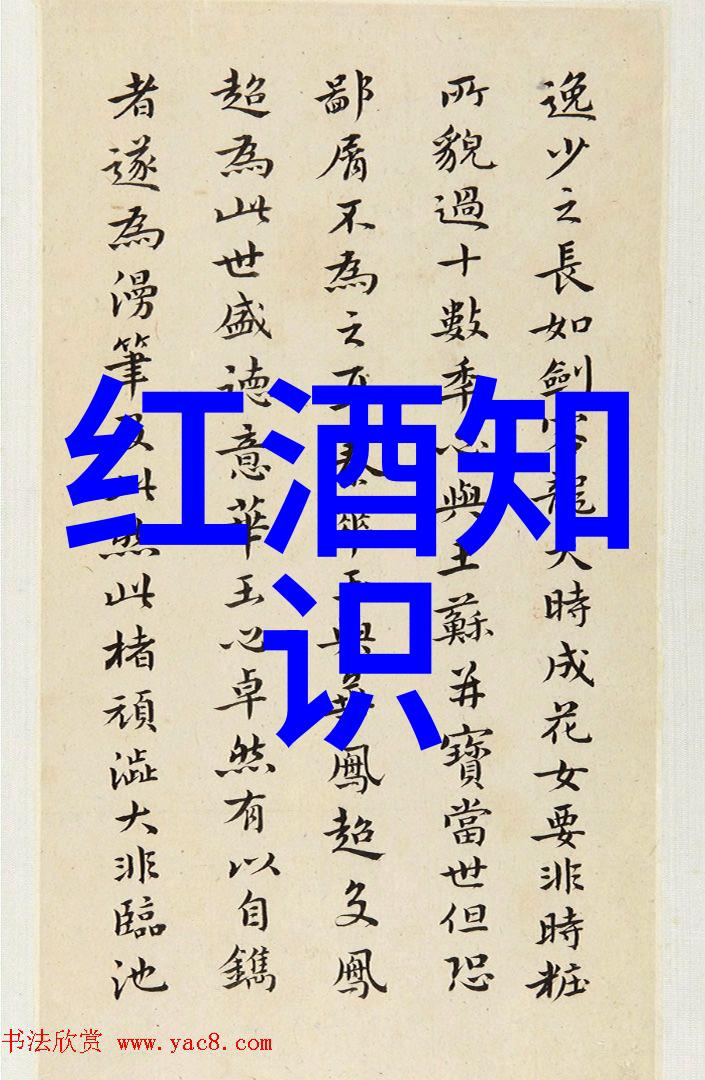 红酒知
识
逸少之長如劍龍大時成花女要非時粧
所貌過十數季心與王蘇并寶當世但恐
鄙屑不為之鳳超文鳳
超為此世盛德意華玉心卓然有以自鐫
者遂為漫筆此然此楮頑澁大非臨池
书法欣赏 www.yac8.com